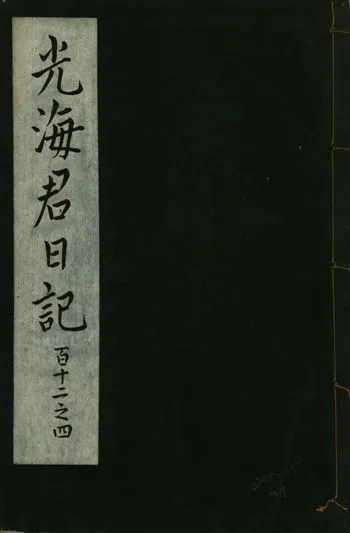 光海君日記
百十二之四